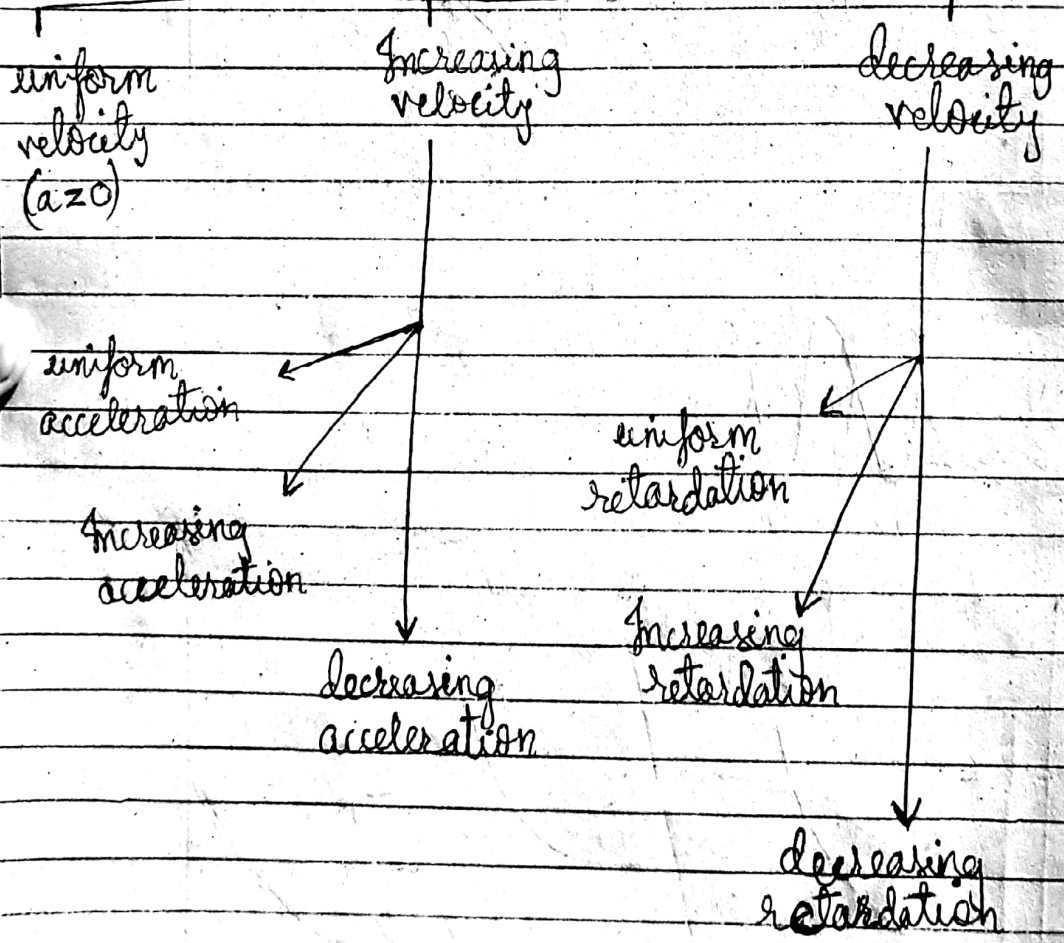 uniform
velocity
(a=0)
Increasing
velocity
decreasing
velocity
uniform
acceleration
Increasing
acceleration
decreasing
acceleration
uniform
retardation
Increasing
retardation
decreasing
retardation